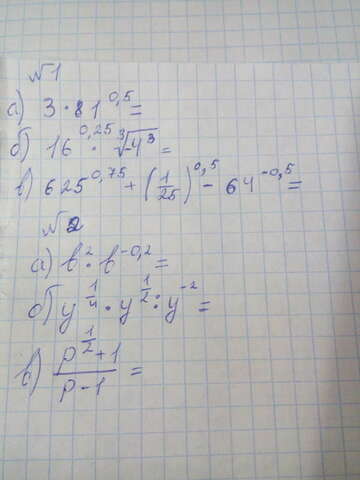 №1
а) 3 · 81^0,5 =
б) 16^0,25 · ∛-4^3 =
в) 625^0,75 + (1/25)^0,5 - 64^-0,5 =
№2
а) b^2 · b^-0,2 =
б) y^1/4 · y^1/2 : y^-2 =
в) (p^1/2 + 1)/(p - 1) =